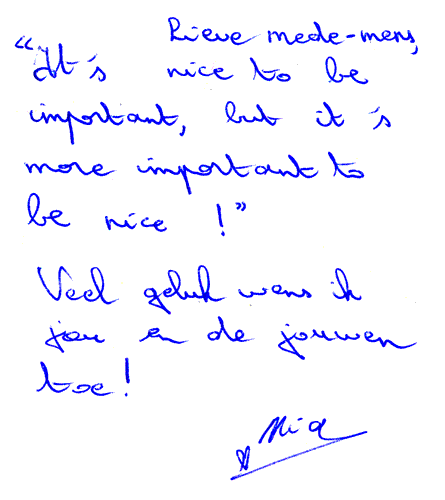 Lieve mede-mens,
"It's nice to be
important, but it 's
more important to
be nice !"
Veel geluk wens ik
jou en de jouwen
toe!